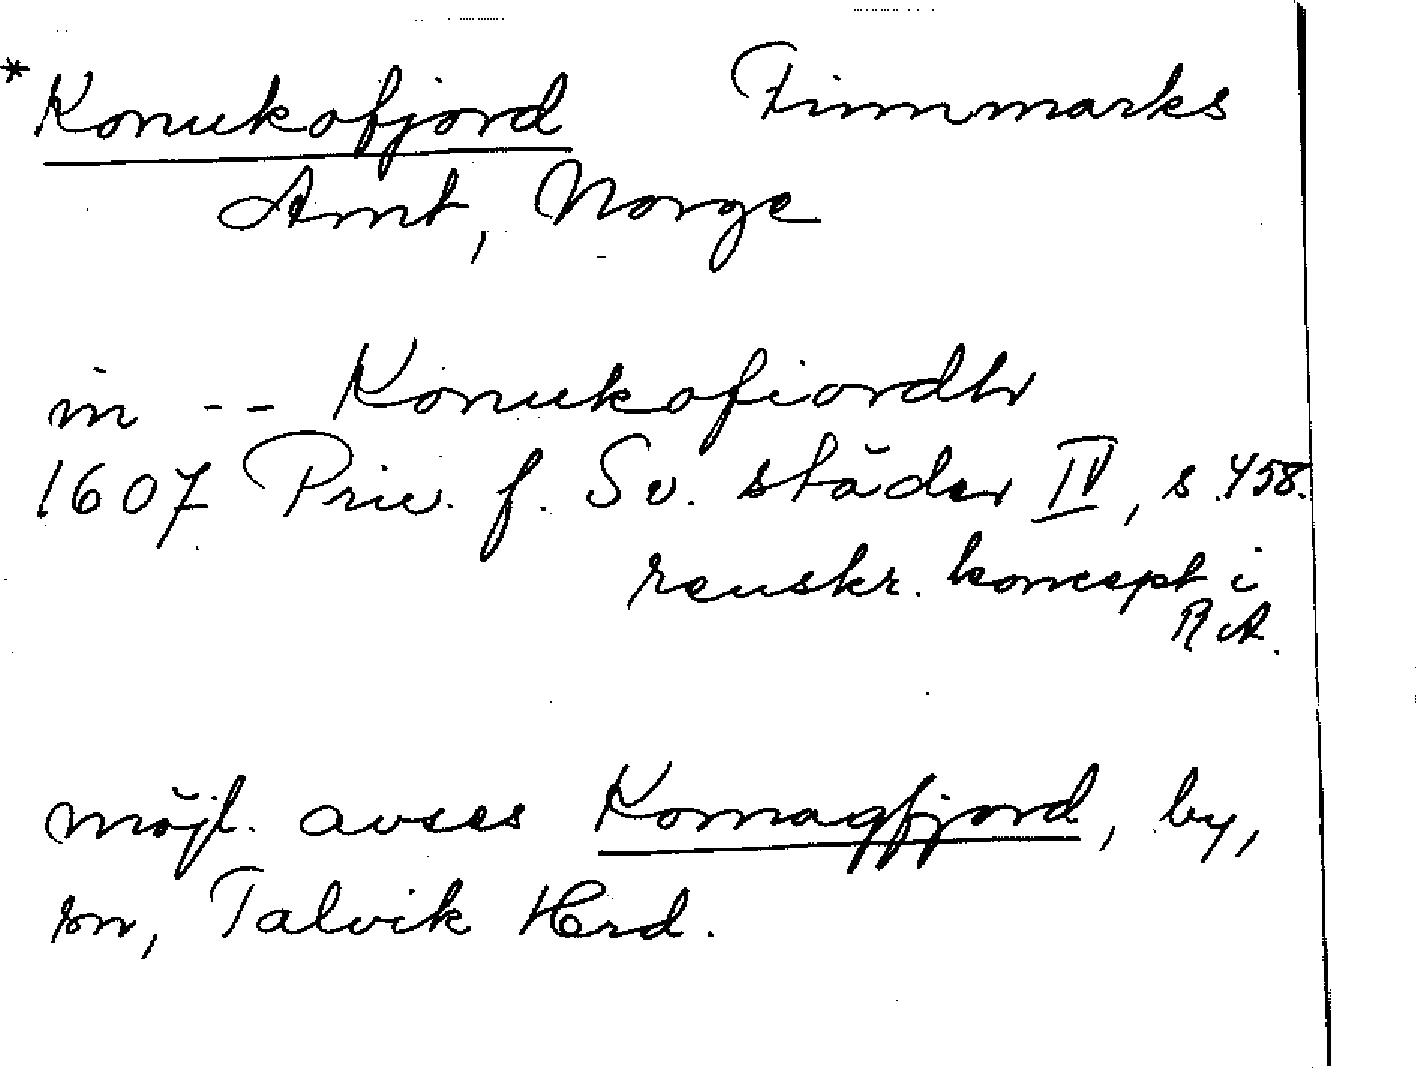 *Konukofjord Finnmarks
Amt, Norge
in -- Konukofiordhr
1607 Priv. f. Sv. städer IV, s. 458.
renskr. koncept i
RA.
möjl. avses Komagfjord, by,
sn, Talvik Hrd.